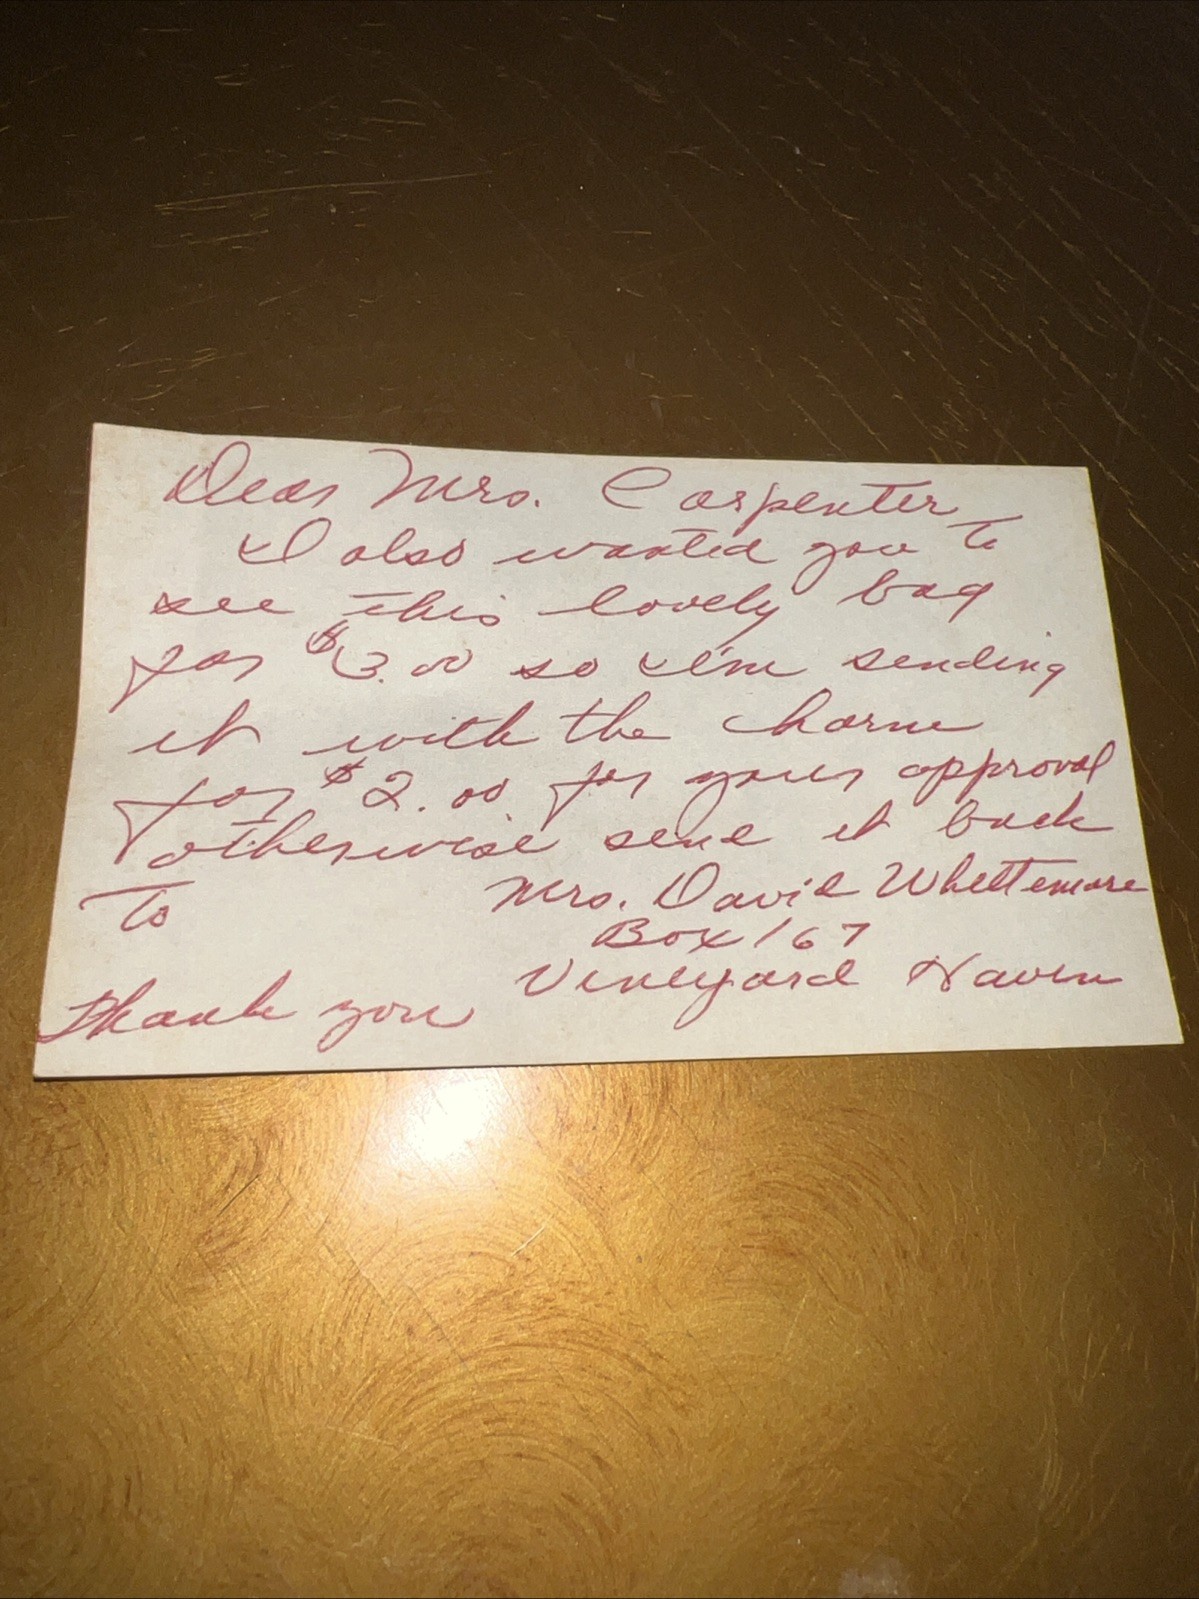 Dear Mrs. Carpenter
I also wanted you to
see this lovely bag
for $3.00 so I'm sending
it with the charm
for $2.00 for your approval
otherwise send it back
To Mrs. David Whittemore
Box 167
Vineyard Haven
Thank you